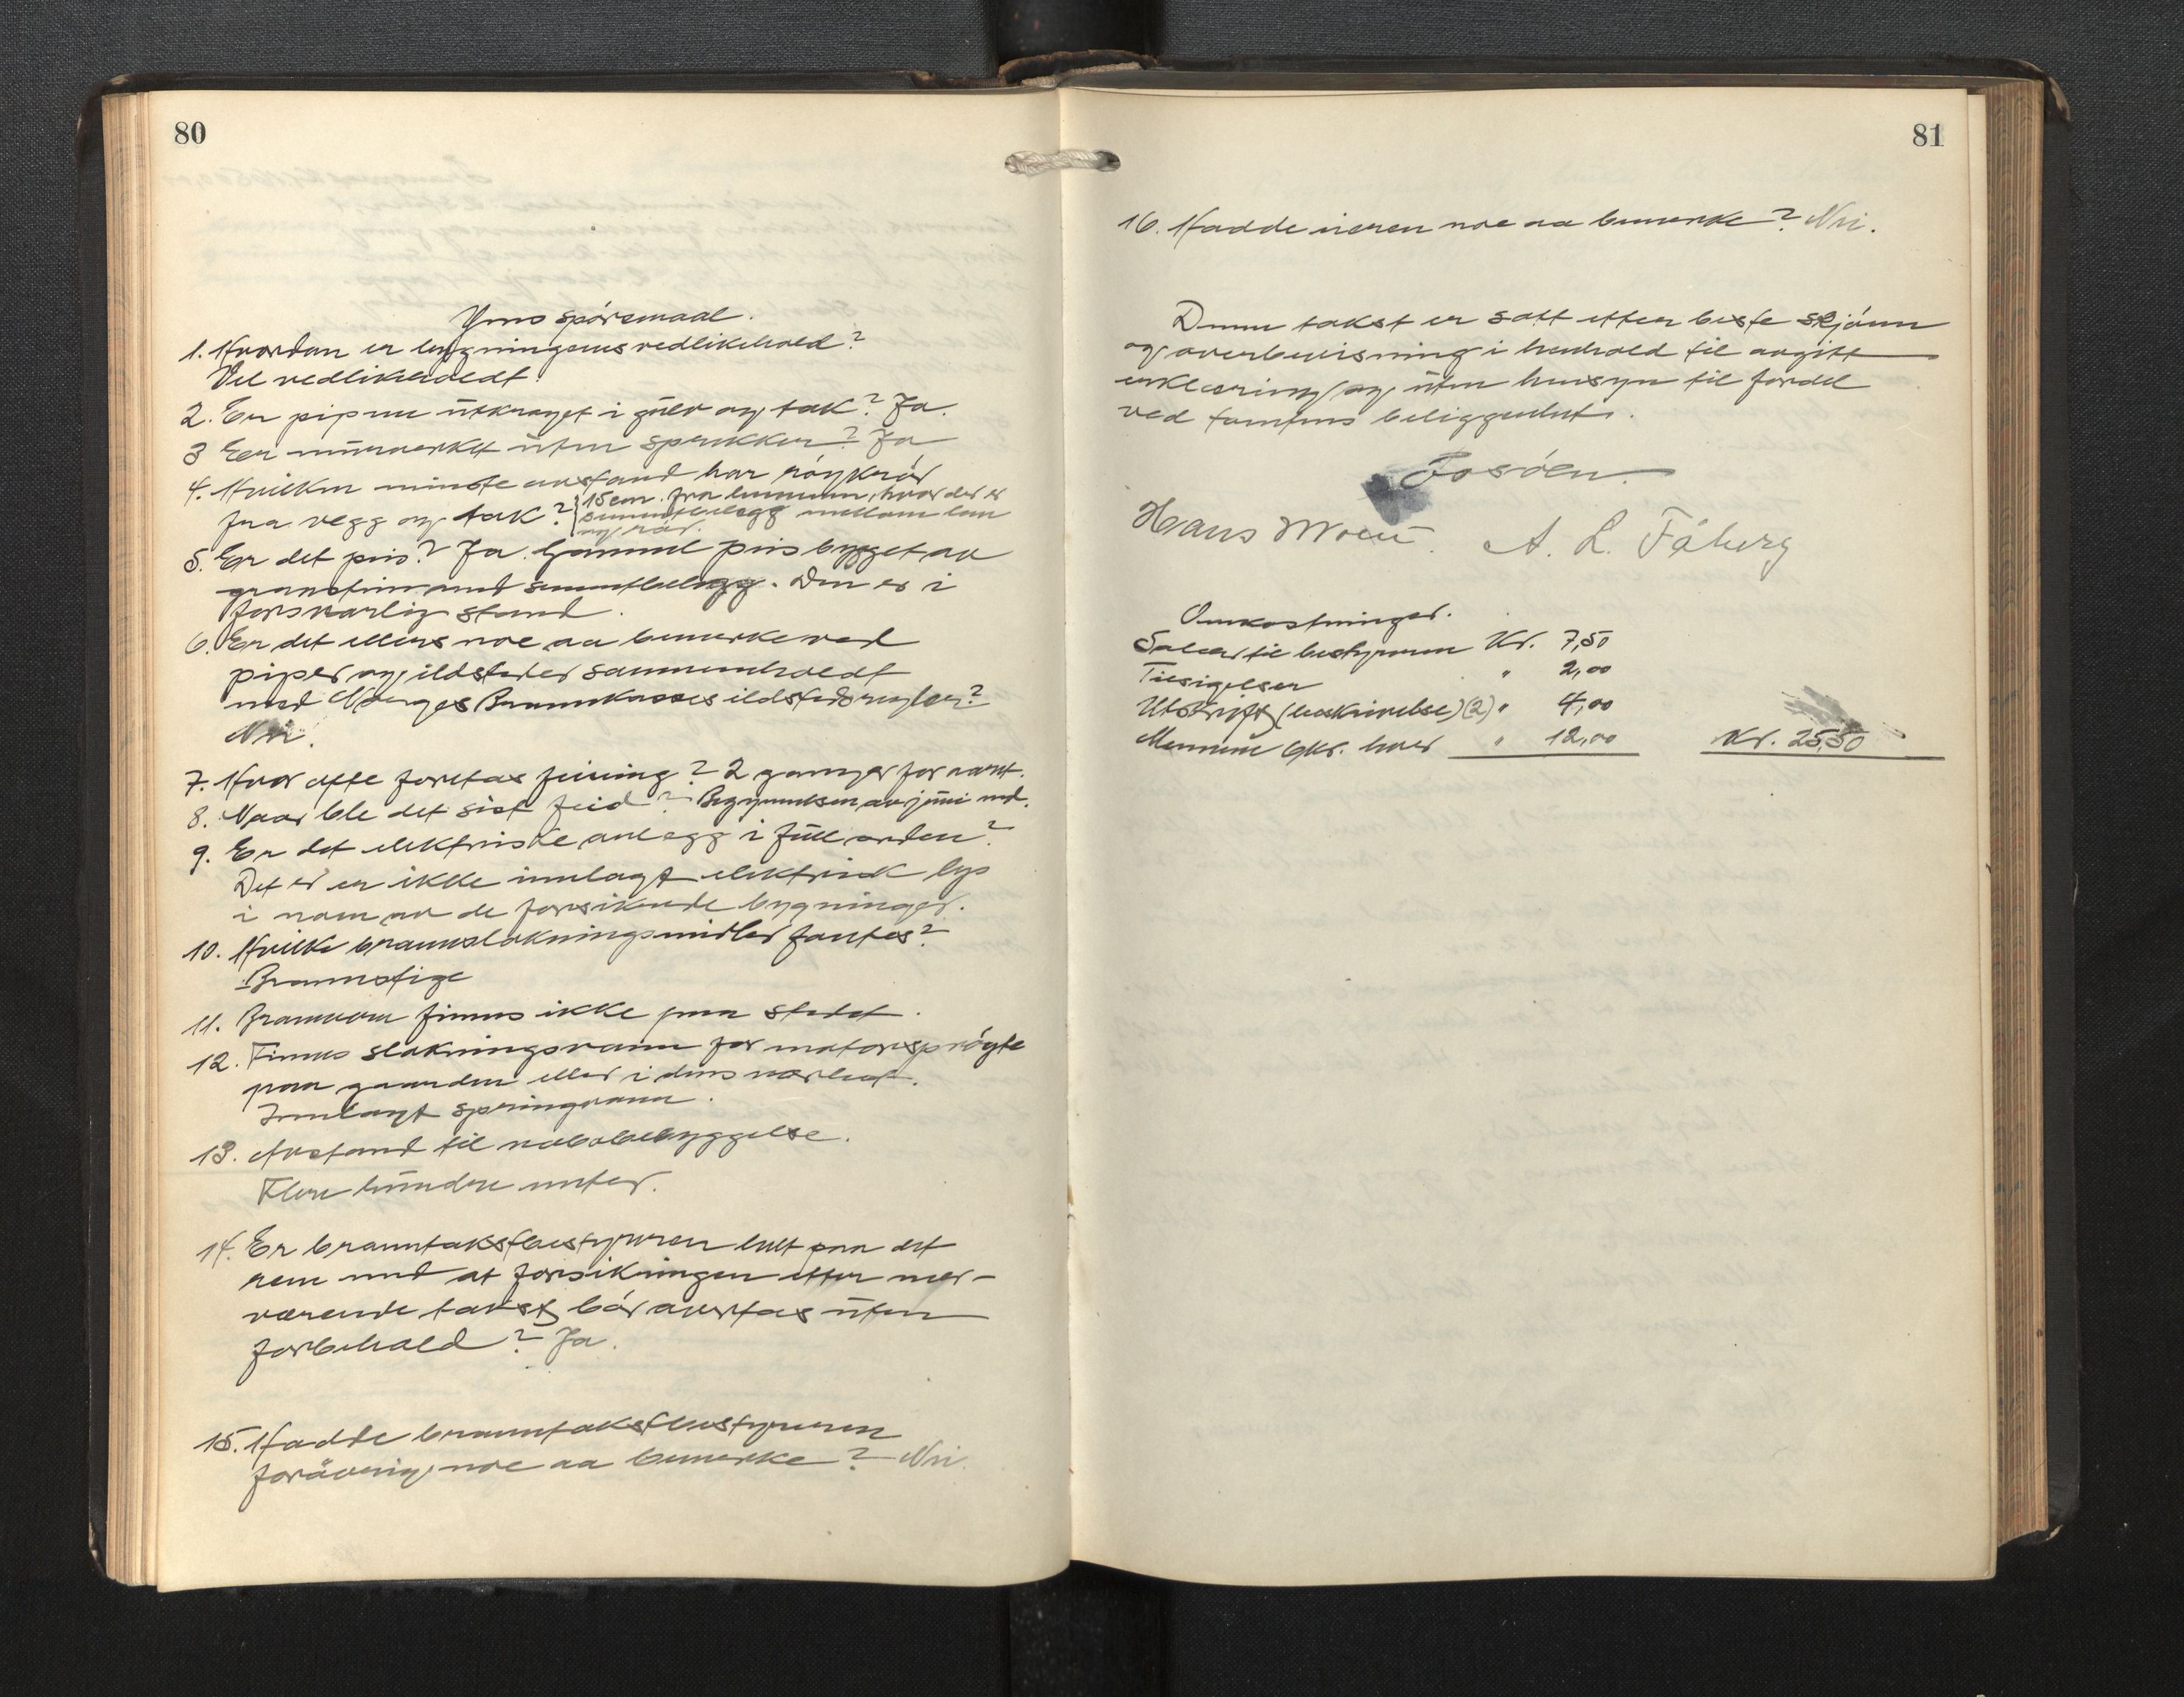 80
Ymse spörsmaal.
1. Hvordan er bygningenes vedlikehold?
Vel vedlikeholdt.
2. Er pipene ütkraget i gülv og tak? Ja.
3 Er mürverket üten sprekker? Ja
4. Hvilken minste avstand har röykrör
fra vegg og tak? 15 cm. fra brannmur, hvor der er
sementbelegg mellom
og rör.
5. Er det peis? Ja. Gammel peis bygget av
med sementbelegg. Den er i
forsvarlig stand.
6. Er det ellers noe aa bemerke ved
piper og ildsteder sammenholdt
med Norges Brannkasses ildstedsregler?
Nei.
7. Hvor ofte foretas feining? 2 ganger for aaret.
8. Naar ble det sist feid? Begynnelsen av jüni md.
9. Er det elektriske anlegg i füll orden?
Det er ikke innlagt elektrisk lys
i noen av de forsikrede bygninger.
10. Hvilke brannslokningsmidler fantes?
Brannstige
11. Brannvern finnes ikke paa stedet.
12. Finnes slokningsvann for motorspröyte
paa gaarden eller i dens nærhet.
Innlagt springvann.
13. Avstand til nabobebyggelse.
Flere hündre meter.
14. Er branntakstbestyreren helt paa det
rene med at forsikringen etter nær-
værende takst bör avertas üten
forbehold? Ja.
15. Hadde branntakstbestyreren
forövrig noe aa bemerke? Nei.
81
16. Hadde eieren noe aa bemerke? Nei.
Denne takst er satt etter beste skjönn
og overbevisning i henhold til avgitt
erklæring og üten hensyn til fordel
ved tomtens beliggenhet.
Fosöen.
Hans Moen. A. L. Fåberg
Omkostninger.
Salær til bestyreren Kr. 7,50
Tilsigelser " 2,00
Utskrift (beskrivelse) (2) " 4,00
Mennene 6 kr. hver " 12,00 Kr. 25,50